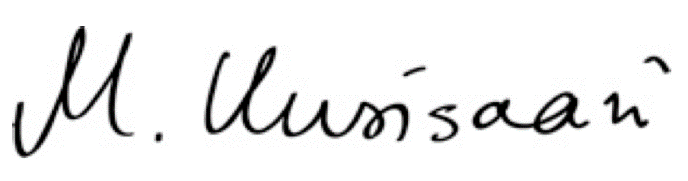 M. Uusisaari